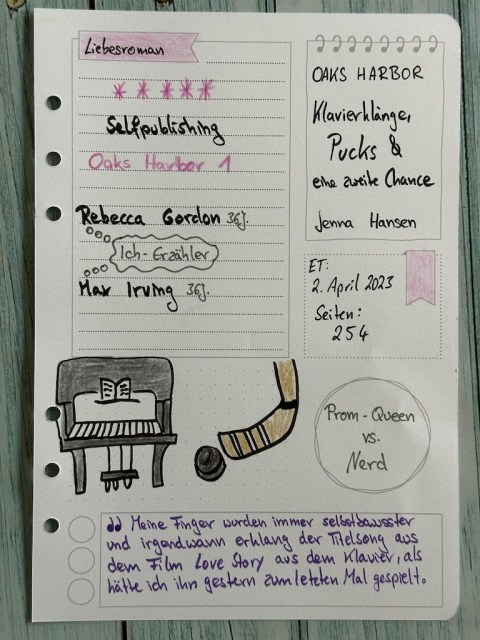 Liebesroman
Selfpublishing
Oaks Harbor 1
Rebecca Gordon 36J.
Ich-Erzähler
Max Irving 36J.
OAKS HARBOR
Klavierklänge,
Pucks &
eine zweite Chance
Jenna Hansen
ET:
2. April 2023
Seiten:
254
Prom-Queen
vs.
Nerd
" Meine Finger wurden immer selbstbewusster
und irgendwann erklang der Titelsong aus
dem Film Love Story aus dem Klavier, als
hätte ich ihn gestern zum letzten Mal gespielt.